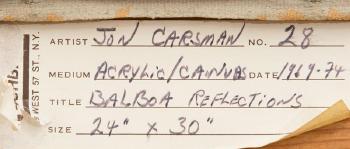 ARTIST JON CARSMAN NO. 28
MEDIUM ACRYLIC/CANVAS DATE 1969-74
TITLE BALBOA REFLECTIONS
SIZE 24" x 30"
WEST 57 ST., N.Y.